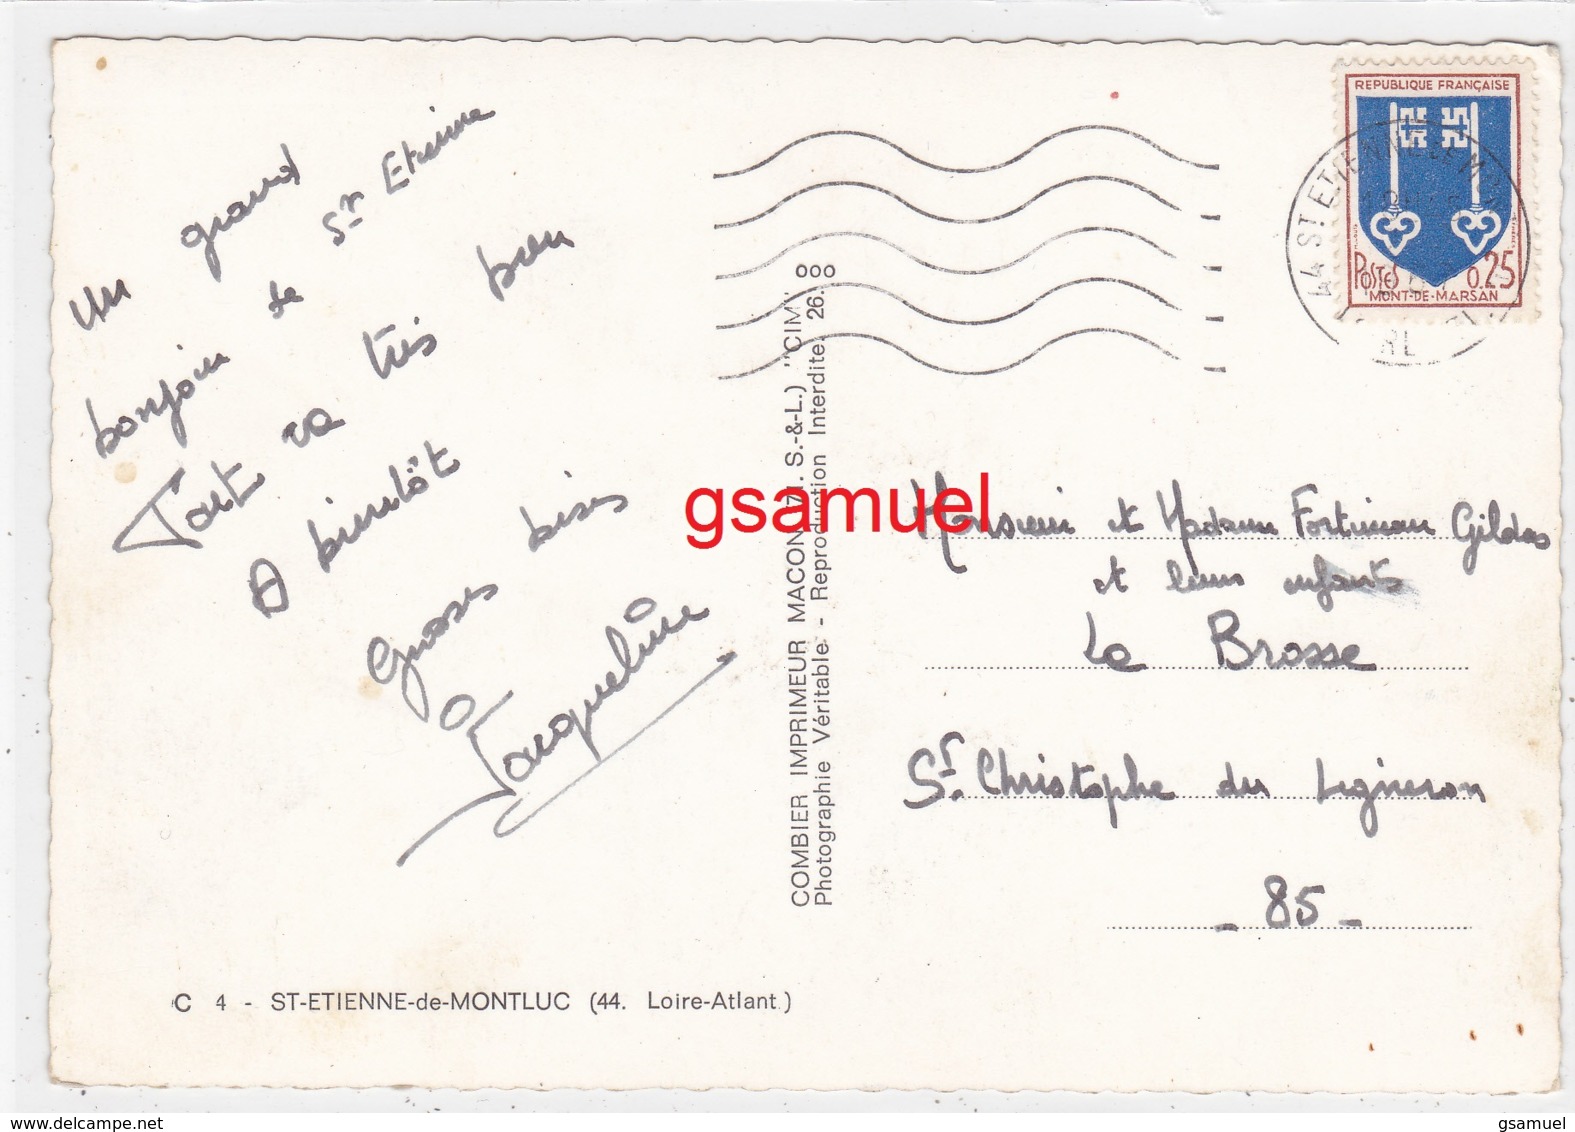 Un grand
bonjour de St Etienne
Tout va très bien
A bientôt
Grosses bises
Jacqueline
C 4 - ST-ETIENNE-de-MONTLUC (44. Loire-Atlant.)
COMBIER IMPRIMEUR MACON (71. S.-&-L.) "CIM"
Photographie Véritable - Reproduction Interdite 26. 000
gsamuel
REPUBLIQUE FRANÇAISE
POSTES 0.25
MONT-DE-MARSAN
44 ST ETIENNE DE M
Monsieur et Madame Fortineau Gildas
et leurs enfants
La Brosse
St. Christophe du Ligneron
- 85 -
www.delcampe.net
gsamuel